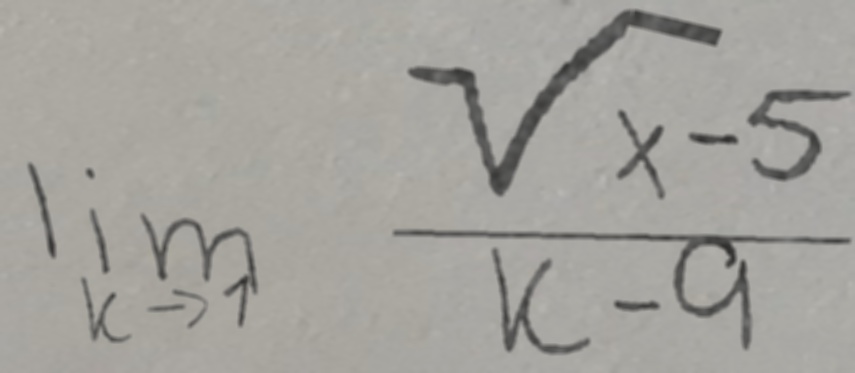 lim k→1 √x-5 / k-9